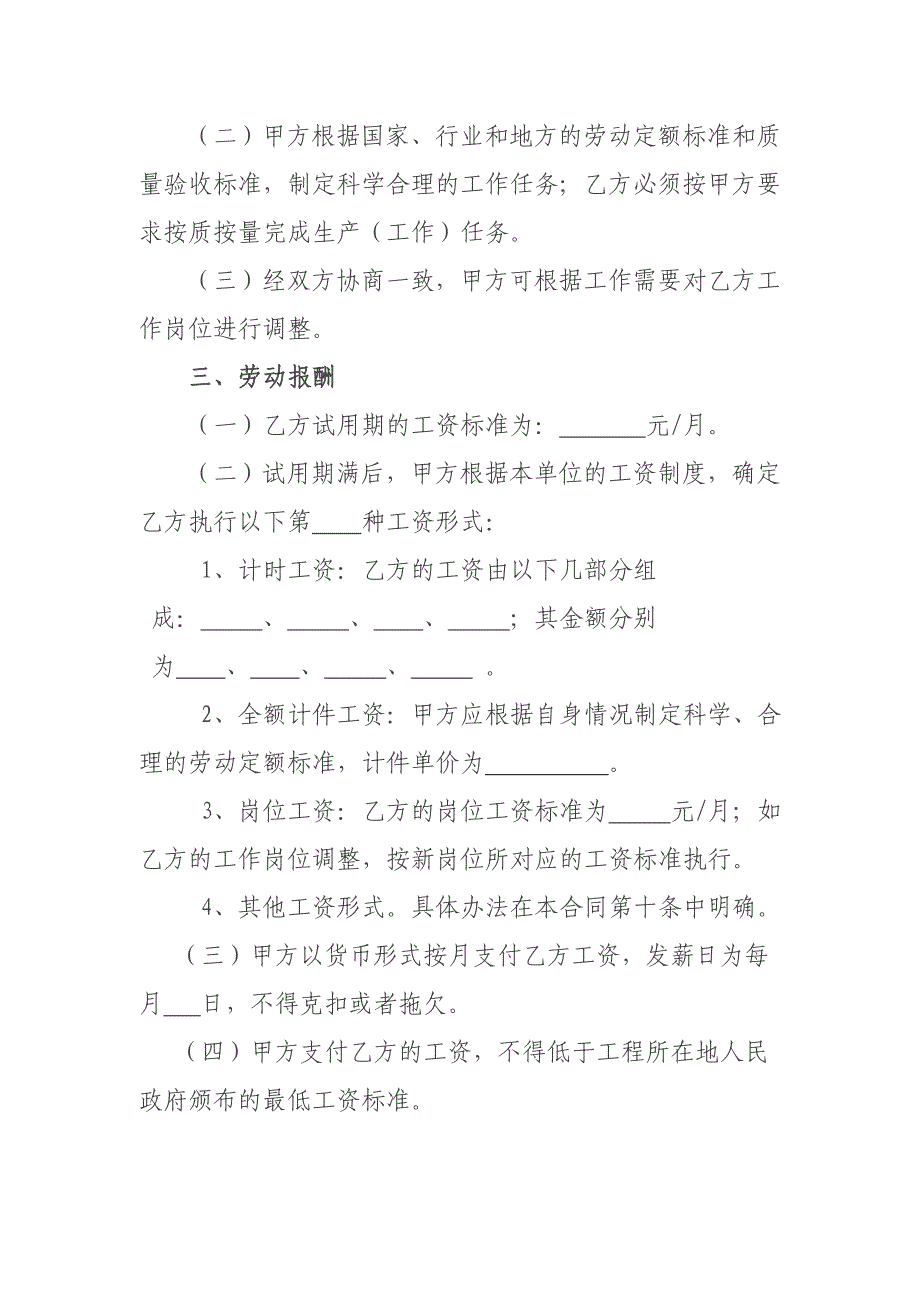 （二）甲方根据国家、行业和地方的劳动定额标准和质
量验收标准，制定科学合理的工作任务；乙方必须按甲方要
求按质按量完成生产（工作）任务。
（三）经双方协商一致，甲方可根据工作需要对乙方工
作岗位进行调整。
三、劳动报酬
（一）乙方试用期的工资标准为：_______元/月。
（二）试用期满后，甲方根据本单位的工资制度，确定
乙方执行以下第____种工资形式：
1、计时工资：乙方的工资由以下几部分组
成：_____、_____、____、_____；其金额分别
为____、____、_____、_____ 。
2、全额计件工资：甲方应根据自身情况制定科学、合
理的劳动定额标准，计件单价为__________。
3、岗位工资：乙方的岗位工资标准为_____元/月；如
乙方的工作岗位调整，按新岗位所对应的工资标准执行。
4、其他工资形式。具体办法在本合同第十条中明确。
（三）甲方以货币形式按月支付乙方工资，发薪日为每
月___日，不得克扣或者拖欠。
（四）甲方支付乙方的工资，不得低于工程所在地人民
政府颁布的最低工资标准。